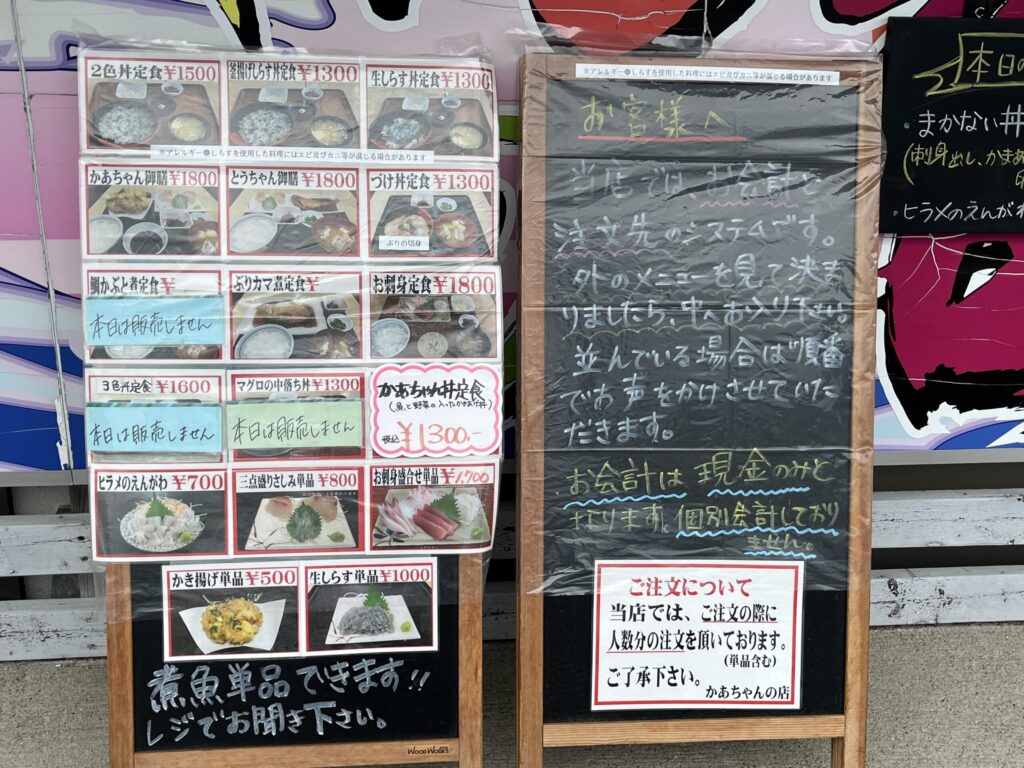 2色丼定食¥1500
釜揚げしらす丼定食¥1300
生しらす丼定食¥1300
※アレルギー しらすを使用した料理にはエビ及びカニ等が混じる場合があります
かあちゃん御膳¥1800
とうちゃん御膳¥1800
づけ丼定食¥1300
ぶりの切身
鯛かぶと煮定食 ¥
本日は販売しません
ぶりカマ煮定食¥
お刺身定食¥1800
3色丼定食¥1600
本日は販売しません
マグロの中落ち丼¥1300
本日は販売しません
かあちゃん丼定食
税込 ¥1300.-
ヒラメのえんがわ ¥700
三点盛りさしみ単品 ¥800
お刺身盛合せ単品¥1,700
かき揚げ単品¥500
生しらす単品¥1000
煮魚単品できます!!
レジでお聞き下さい。
WOOD WORKS
※アレルギー しらすを使用した料理にはエビ及びカニ等が混じる場合があります
お客様へ
当店では、お会計と
注文先のシステムです。
外のメニューを見て決ま
りましたら、中へお入り下さい。
並んでいる場合は順番
でお声をかけさせていた
だきます。
お会計は現金のみと
なります。個別会計しており
ません。
ご注文について
当店では、ご注文の際に
人数分の注文を頂いております。
(単品含む)
ご了承下さい。
かあちゃんの店
本日の
・まかない丼
(刺身出し、かまあ
・ヒラメのえんがわ